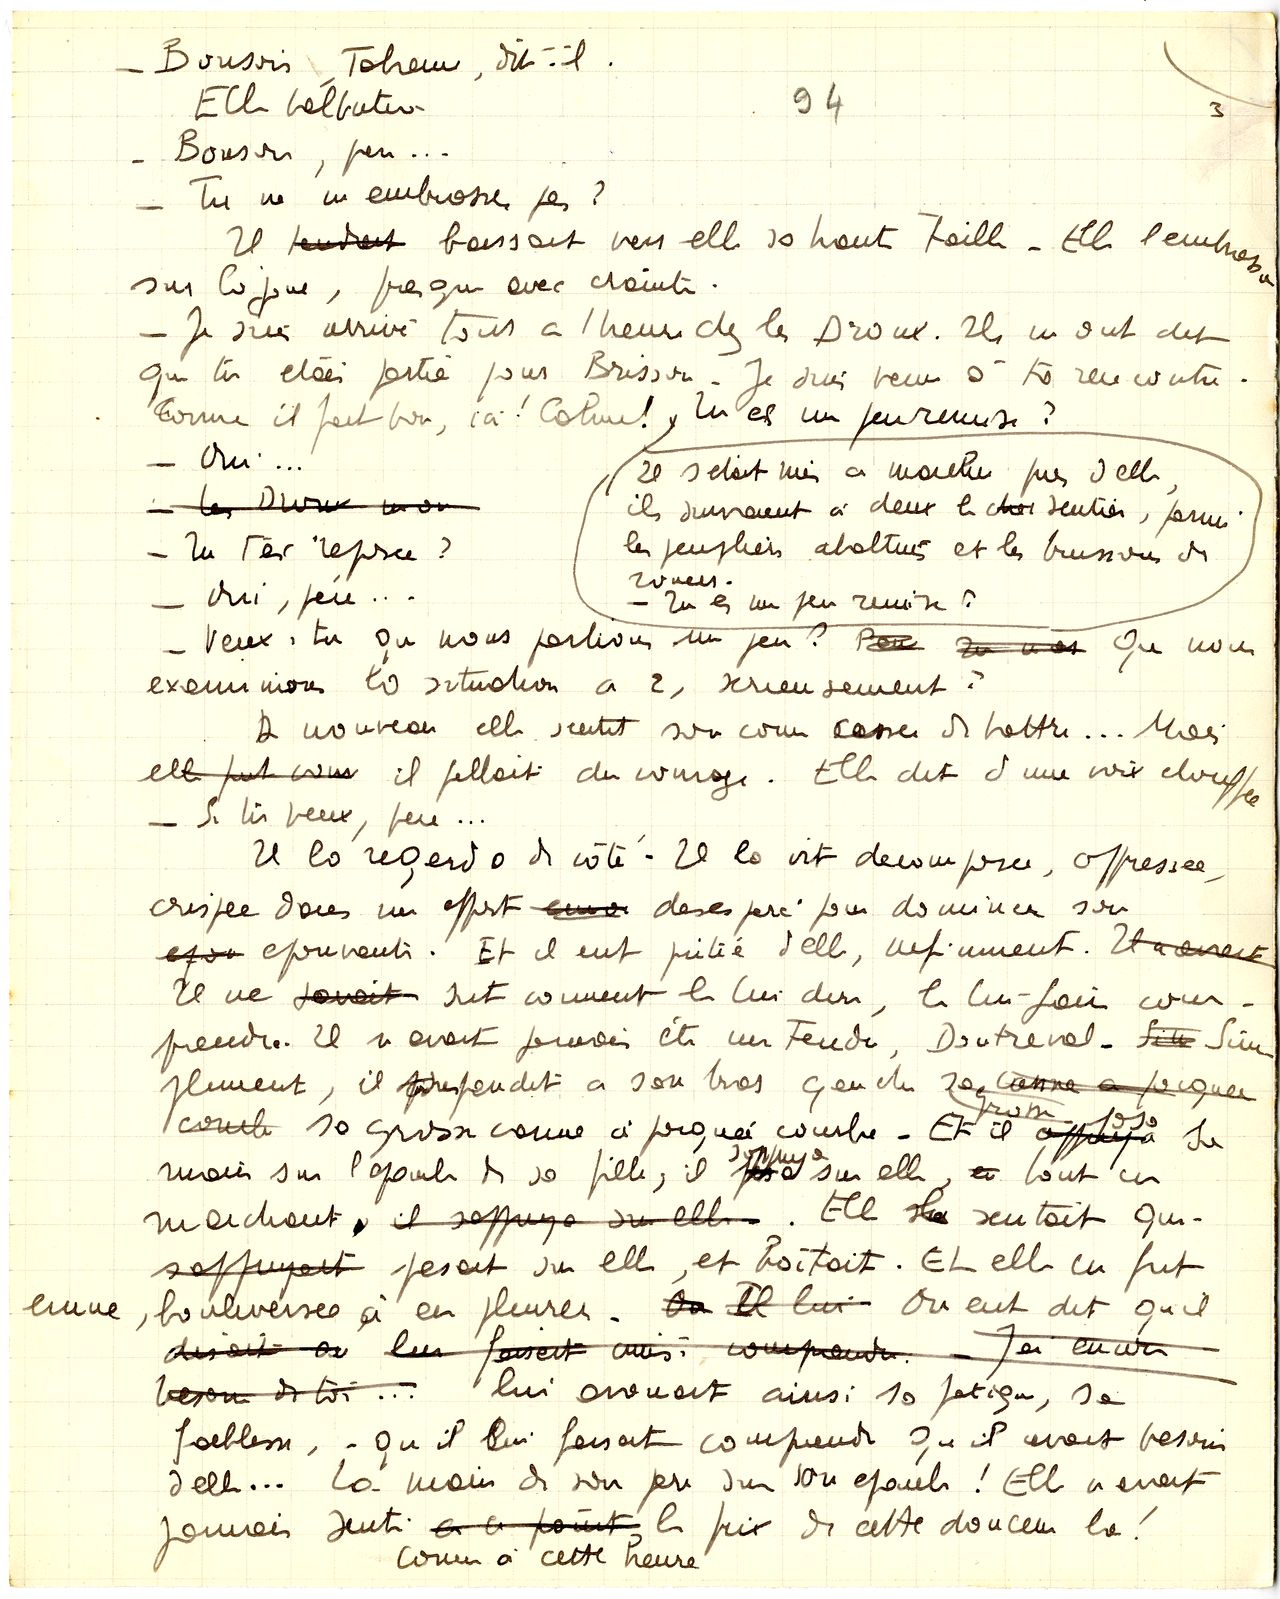 — Bonsoir, Fabienne, dit-il.
Elle balbutia
94
3
- Bonsoir, père...
— Tu ne m embrasses pas ?
Il tendait baissait vers elle sa haute taille - Elle l embrassa
sur la joue, presque avec crainte.
— Je suis arrivé tout a l heure chez les Droux. Ils m ont dit
que tu etais partie pour Brisson - Je suis venu à ta rencontre.
Comme il fait bon, ici ! Calme ! Tu es un peu remise ?
— Oui...
— les Droux m on
— Tu t es reposée ?
— Oui, père...
Il s etait mis a marcher près d elle,
ils suivaient à deux le sentier, parmi
les peupliers abattus et les buissons de
ronces.
— Tu es un peu remise ?
— Veux-tu que nous parlions un peu ? Tu m as Que nous
examinions la situation a 2, serieusement ?
A nouveau elle sentit son cœur cesser de battre... Mais
elle fut il fallait du courage. Elle dit d une voix etouffée
— Si tu veux, père...
Il la regarda de côté - Il la vit decomposée, oppressée,
crispée dans un effort desesperé pour dominer son
epou epouvante. Et il eut pitié d elle, infiniment. Il n avait
Il ne savait sut comment le lui dire, le lui faire com-
prendre. Il n avait jamais été un tendre, Doutreval - Sim
plement, il suspendit a son bras gauche sa canne a poignée
grosse
courbe sa grosse canne à poignée courbe - Et il appuya posa sa
main sur l epaule de sa fille, il s appuya sur elle, tout en
marchant, il s appuya sur elle. Elle sentait qu-
s appuyait pesait sur elle, et boîtait. Et elle en fut
emue, bouleversée à en pleurer - On Il lui On eut dit qu il
disait ou lui faisait ainsi comprendre. — J ai encore
besoin de toi... lui avouait ainsi sa fatigue, sa
faiblesse, - qu il lui faisait comprendre qu il avait besoin
d elle... La main de son père sur son epaule ! Elle n avait
jamais senti a ce point le prix de cette douceur la !
comme à cette heure